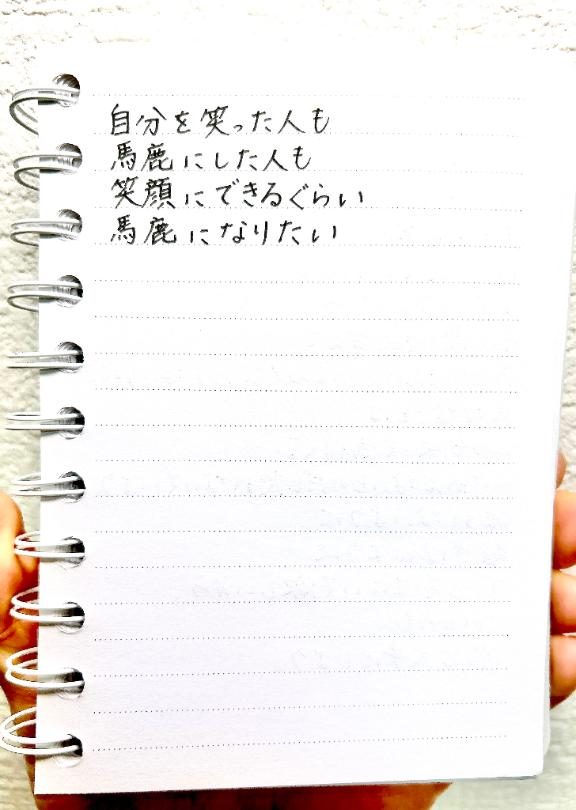 自分を笑った人も
馬鹿にした人も
笑顔にできるぐらい
馬鹿になりたい